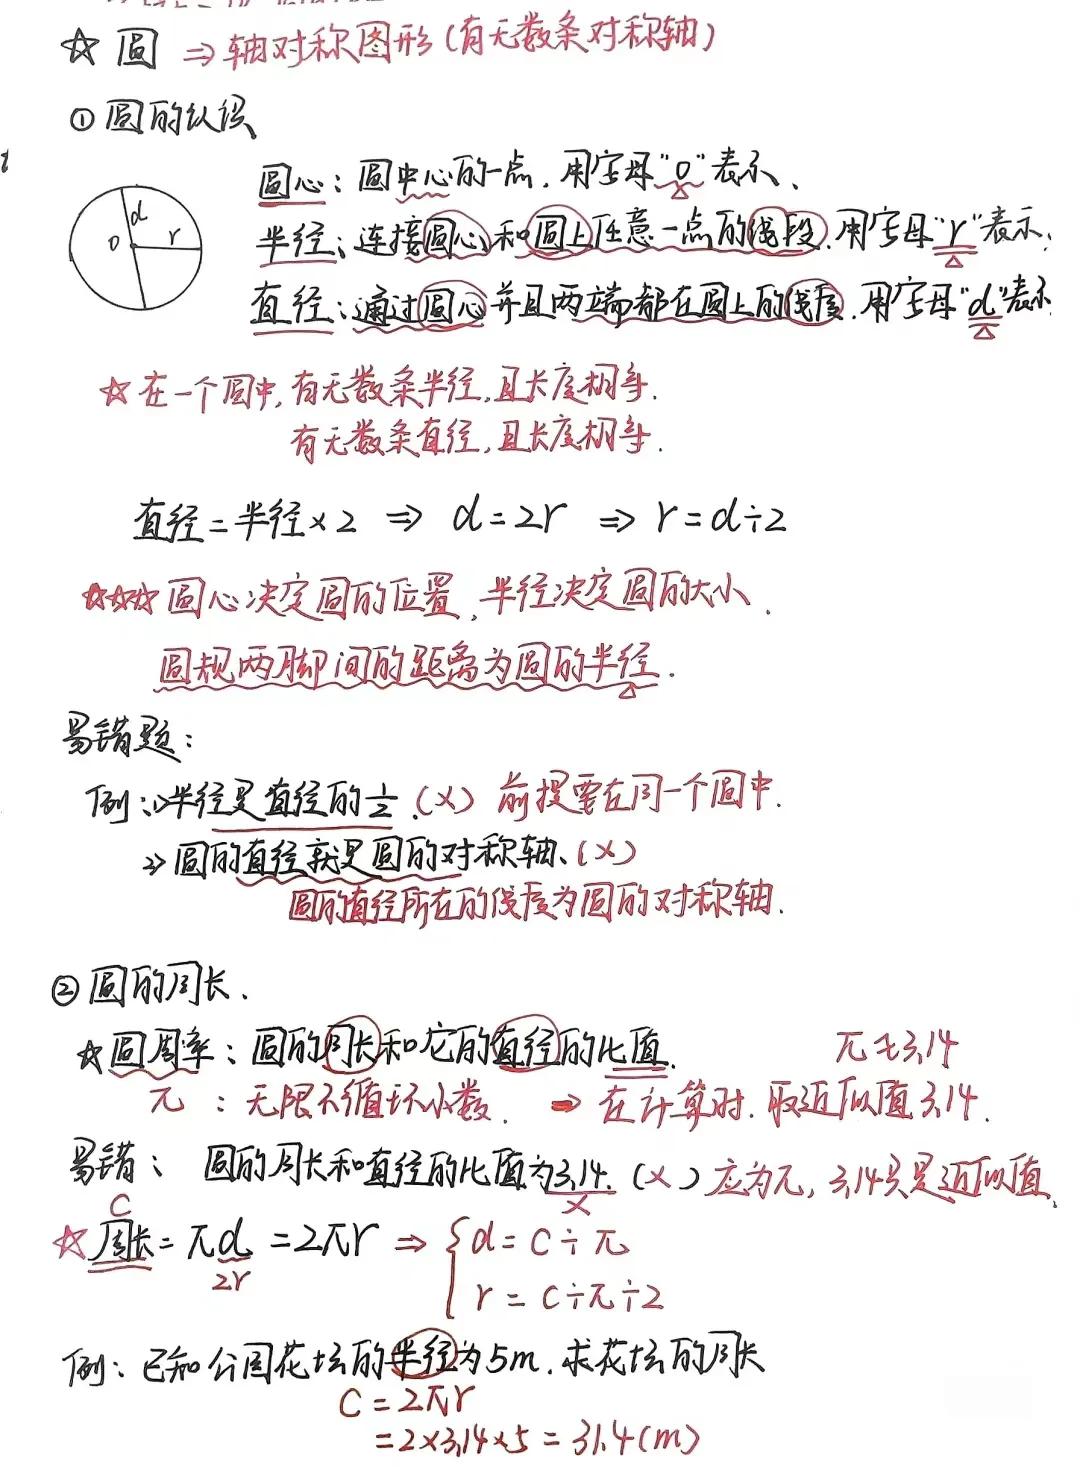 ☆ 圆 ⇒ 轴对称图形(有无数条对称轴)
① 圆的认识
圆心: 圆中心的一点. 用字母"o"表示、
d
o r
半径: 连接圆心和圆上任意一点的线段. 用字母"r"表示.
直径: 通过圆心并且两端都在圆上的线段. 用字母"d"表示
☆ 在一个圆中, 有无数条半径, 且长度相等.
有无数条直径, 且长度相等.
直径=半径×2 ⇒ d=2r ⇒ r=d÷2
☆☆☆ 圆心决定圆的位置, 半径决定圆的大小.
圆规两脚间的距离为圆的半径.
易错题:
例: 1) 半径是直径的1/2. (×) 前提要在同一个圆中.
2) 圆的直径就是圆的对称轴、(×)
圆的直径所在的线段为圆的对称轴.
② 圆的周长.
☆ 圆周率: 圆的周长和它的直径的比值. π≈3.14
π : 无限不循环小数. → 在计算时. 取近似值3.14.
易错: 圆的周长和直径的比值为3.14. (×) 应为π, 3.14只是近似值.
C ×
☆ 周长=πd=2πr ⇒ { d=C÷π
2r r=C÷π÷2
例: 已知公园花坛的半径为5m. 求花坛的周长
C=2πr
=2×3.14×5=31.4(m)